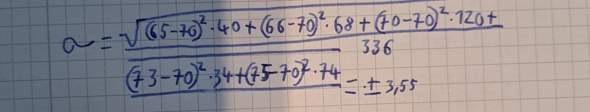 a = √(65-70)²·40+(66-70)²·68+(70-70)²·120+
336
(73-70)²·34+(75-70)²·74 = ± 3,55